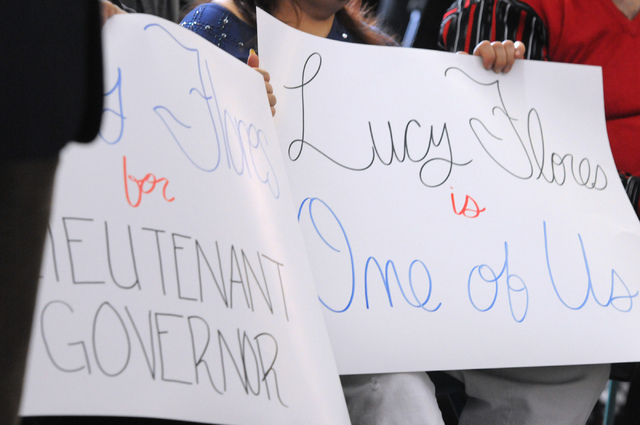 Flores
for
LIEUTENANT
GOVERNOR
Lucy Flores
is
One of Us